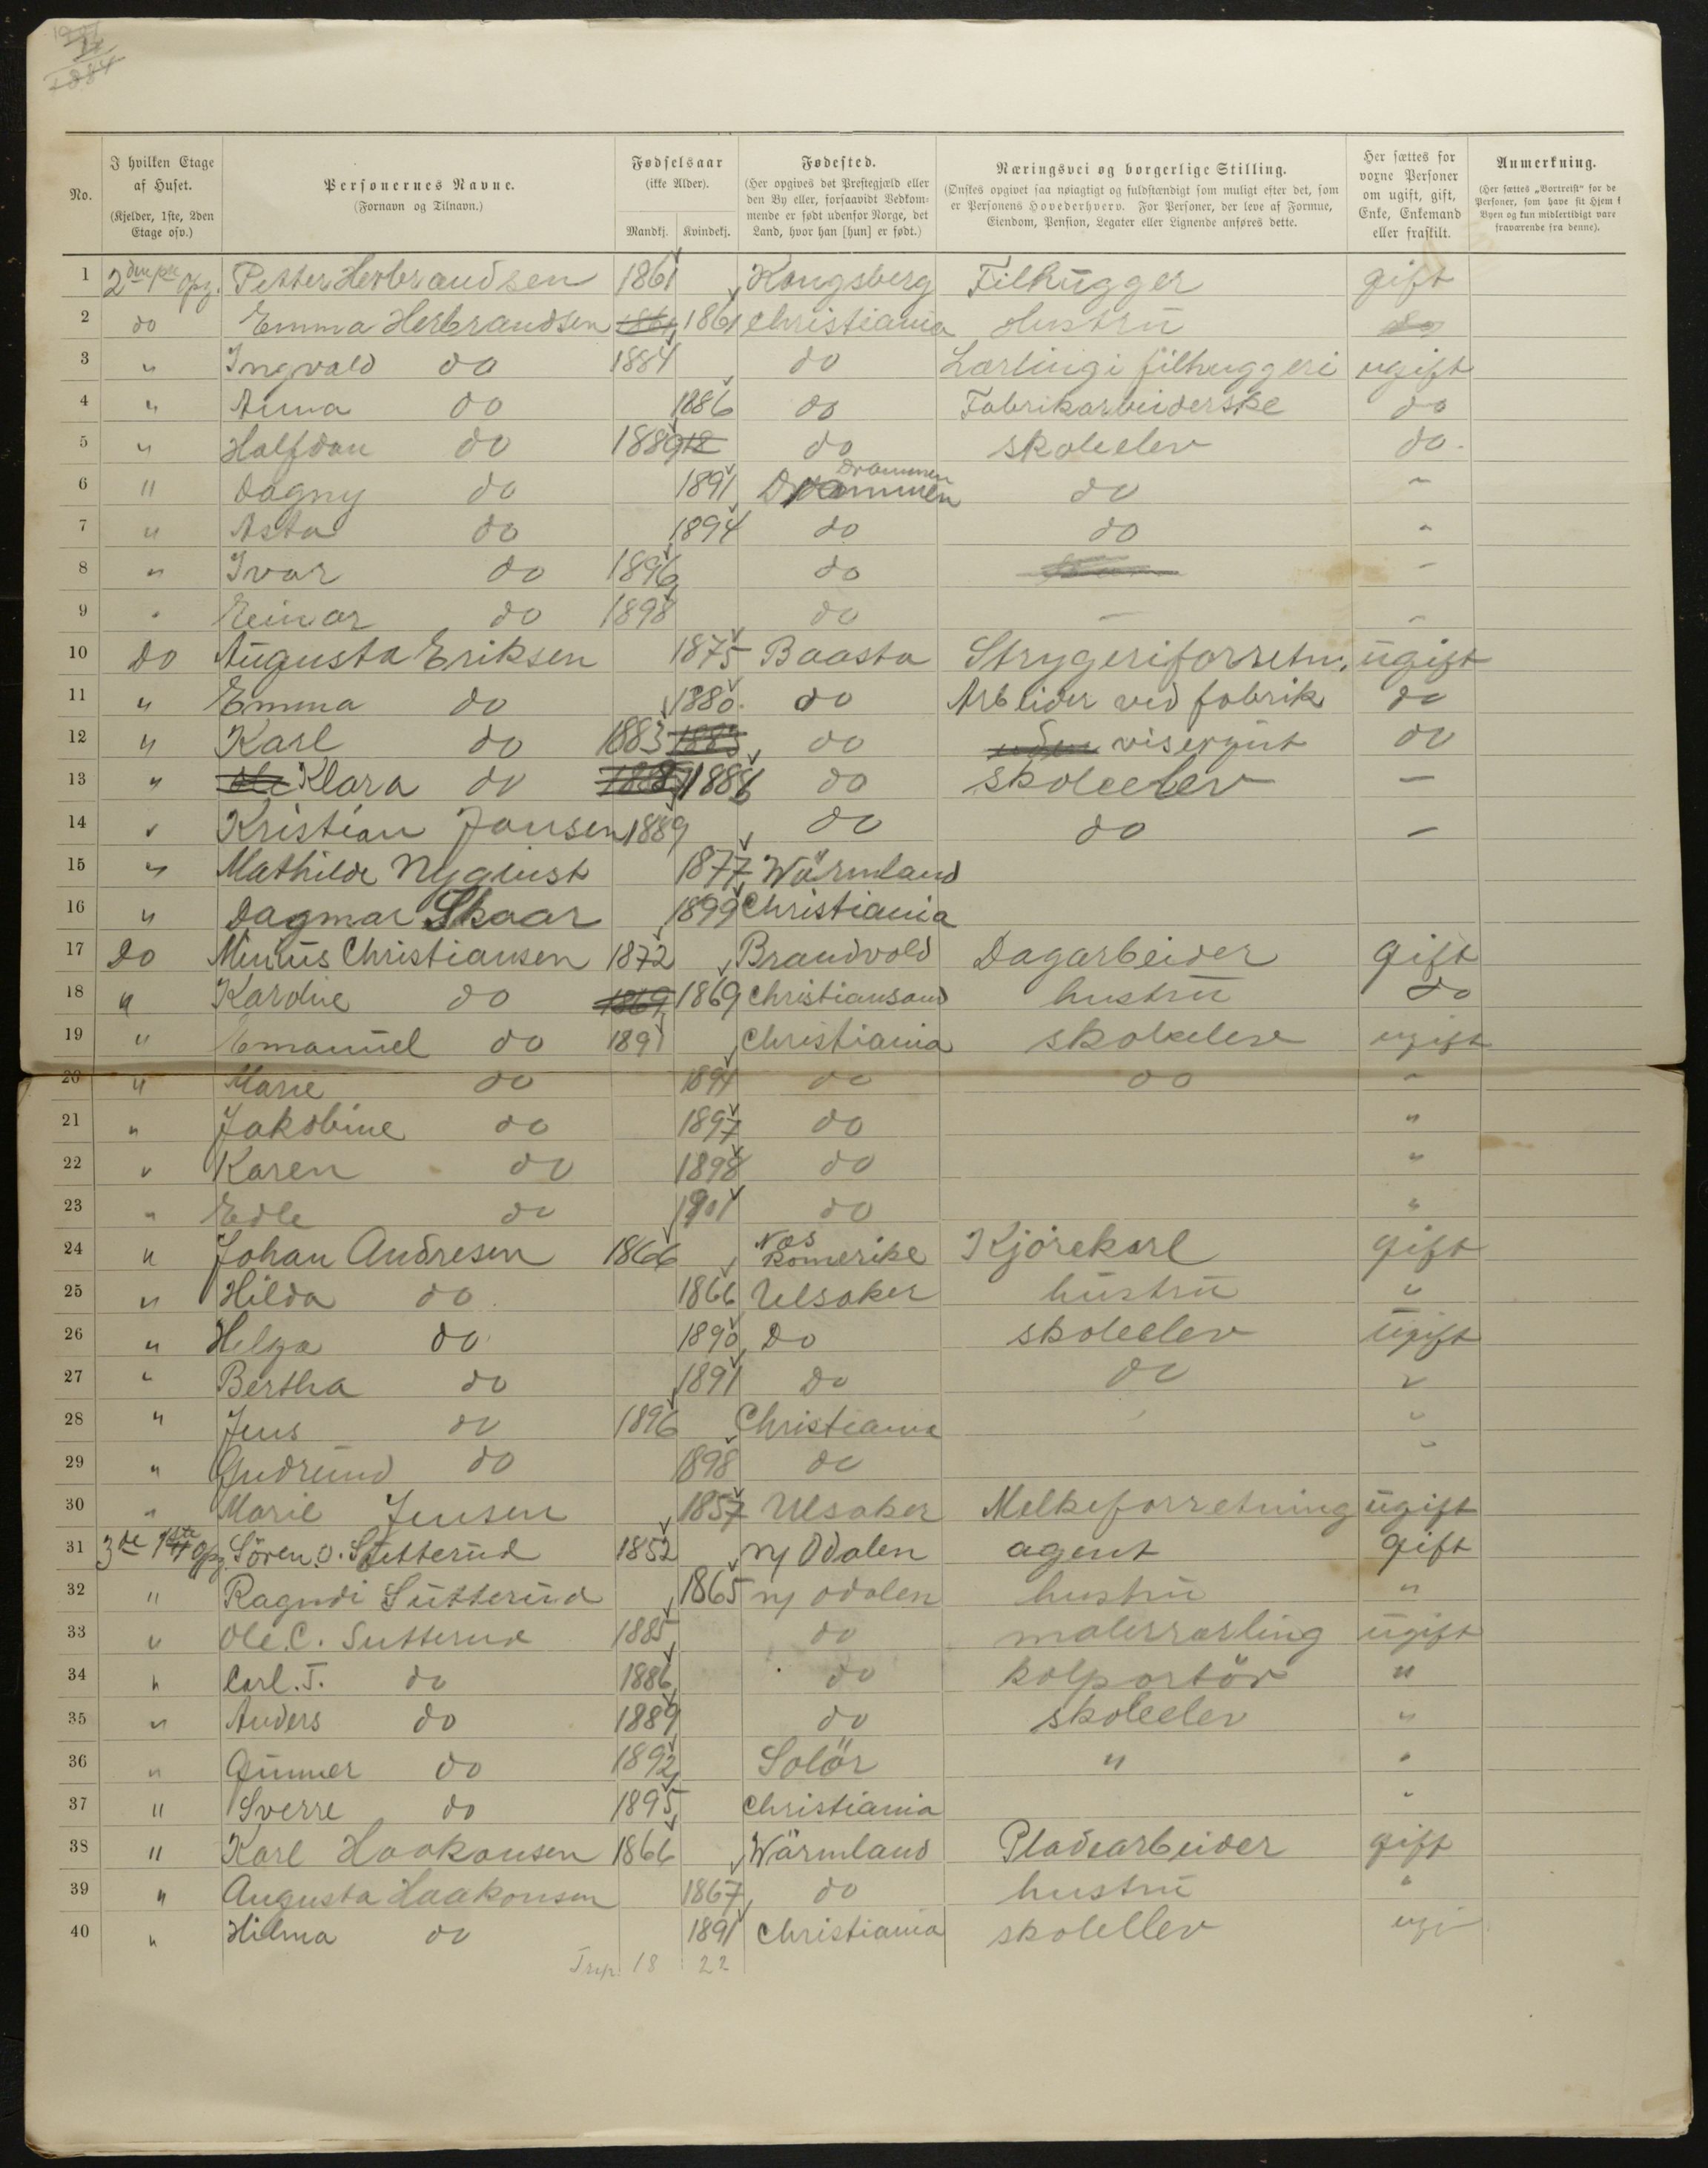 No.
I hvilken Etage af Huset. (Kjelder, 1ste, 2den Etage osv.)
Personernes Navne. (Fornavn og Tilnavn.)
Fødselsaar (ikke Alder). Mandkj. Kvindekj.
Fødested. (Her opgives det Prestegjæld eller den By eller, forsaavidt Vedkommende er født udenfor Norge, det Land, hvor han [hun] er født.)
Næringsvei og borgerlige Stilling. (Ønskes opgivet saa nøiagtigt og fuldstændigt som muligt efter det, som er Personens Hovederhverv. For Personer, der leve af Formue, Eiendom, Pension, Legater eller Lignende anføres dette.
Her sættes for voxne Personer om ugift, gift, Enke, Enkemand eller fraskilt.
Anmerkning. (Her sættes „Bortreist“ for de Personer, som have sit Hjem i Byen og kun midlertidigt vare fraværende fra denne).
1 Petter Herbrandsen 1861 Kongsberg Filhugger gift
2 do Emma Herbrandsen 1861 Christiania Hustru do
3 " Ingvald do 1884 do Lærling i filhuggeri ugift
4 " Anna do 1886 do Fabrikarbeiderske do
5 " Halfdan do 1889 do skoleelev do
6 " Dagny do 1891 Drammen Drammen do "
7 " Asta do 1894 do do "
8 " Ivar do 1896 do "
9 " Einar do 1898 do – "
10 Do Augusta Eriksen 1875 Baasta Strygeriforretn. ugift
11 " Emma do 1880 do Arbeider ved fabrik do
12 " Karl do 1883 1883 do uden visergut do
13 " Ole Klara do 1886 do skoleelev –
14 " Kristian Jansen 1889 do do –
15 " Mathilde Nyquist 1877 Wärmland
16 " Dagmar Skaar 1899 Christiania
17 Do Minius Christiansen 1872 Brandvold Dagarbeider gift
18 " Karoline do 1869 1869 Christiansand hustru do
19 " Emanuel do 1891 Christiania skoleelev ugift
20 " Marie do 1894 do do "
21 " Jakobine do 1897 do "
22 " Karen do 1898 do "
23 " Edle do 1901 do "
24 " Johan Andresen 1866 Næs Romerike Kjørekarl gift
25 " Hilda do 1866 Ulsaker hustru "
26 " Helga do 1890 Do skoleelev ugift
27 " Bertha do 1891 Do do "
28 " Jens do 1896 Christiania "
29 " Gudrund do 1898 do "
30 " Marie Jensen 1857 Ulsaker Melkeforretning ugift
31 Søren O. Sutterud 1852 ny Odalen agent gift
32 " Ragndi Sutterud 1865 ny odalen hustru "
33 " Ole. C. Sutterud 1885 do malerlærling ugift
34 " Carl. T. do 1886 do kolportör "
35 " Anders do 1889 do skoleelev "
36 " Gunner do 1892 Solör " "
37 " Sverre do 1895 Christiania "
38 " Karl Haakonsen 1866 Wärmland Pladearbeider gift
39 " Augusta Haakonsen 1867 do hustru "
40 " Hilma do 1891 Christiania skolellev ugi
18 22